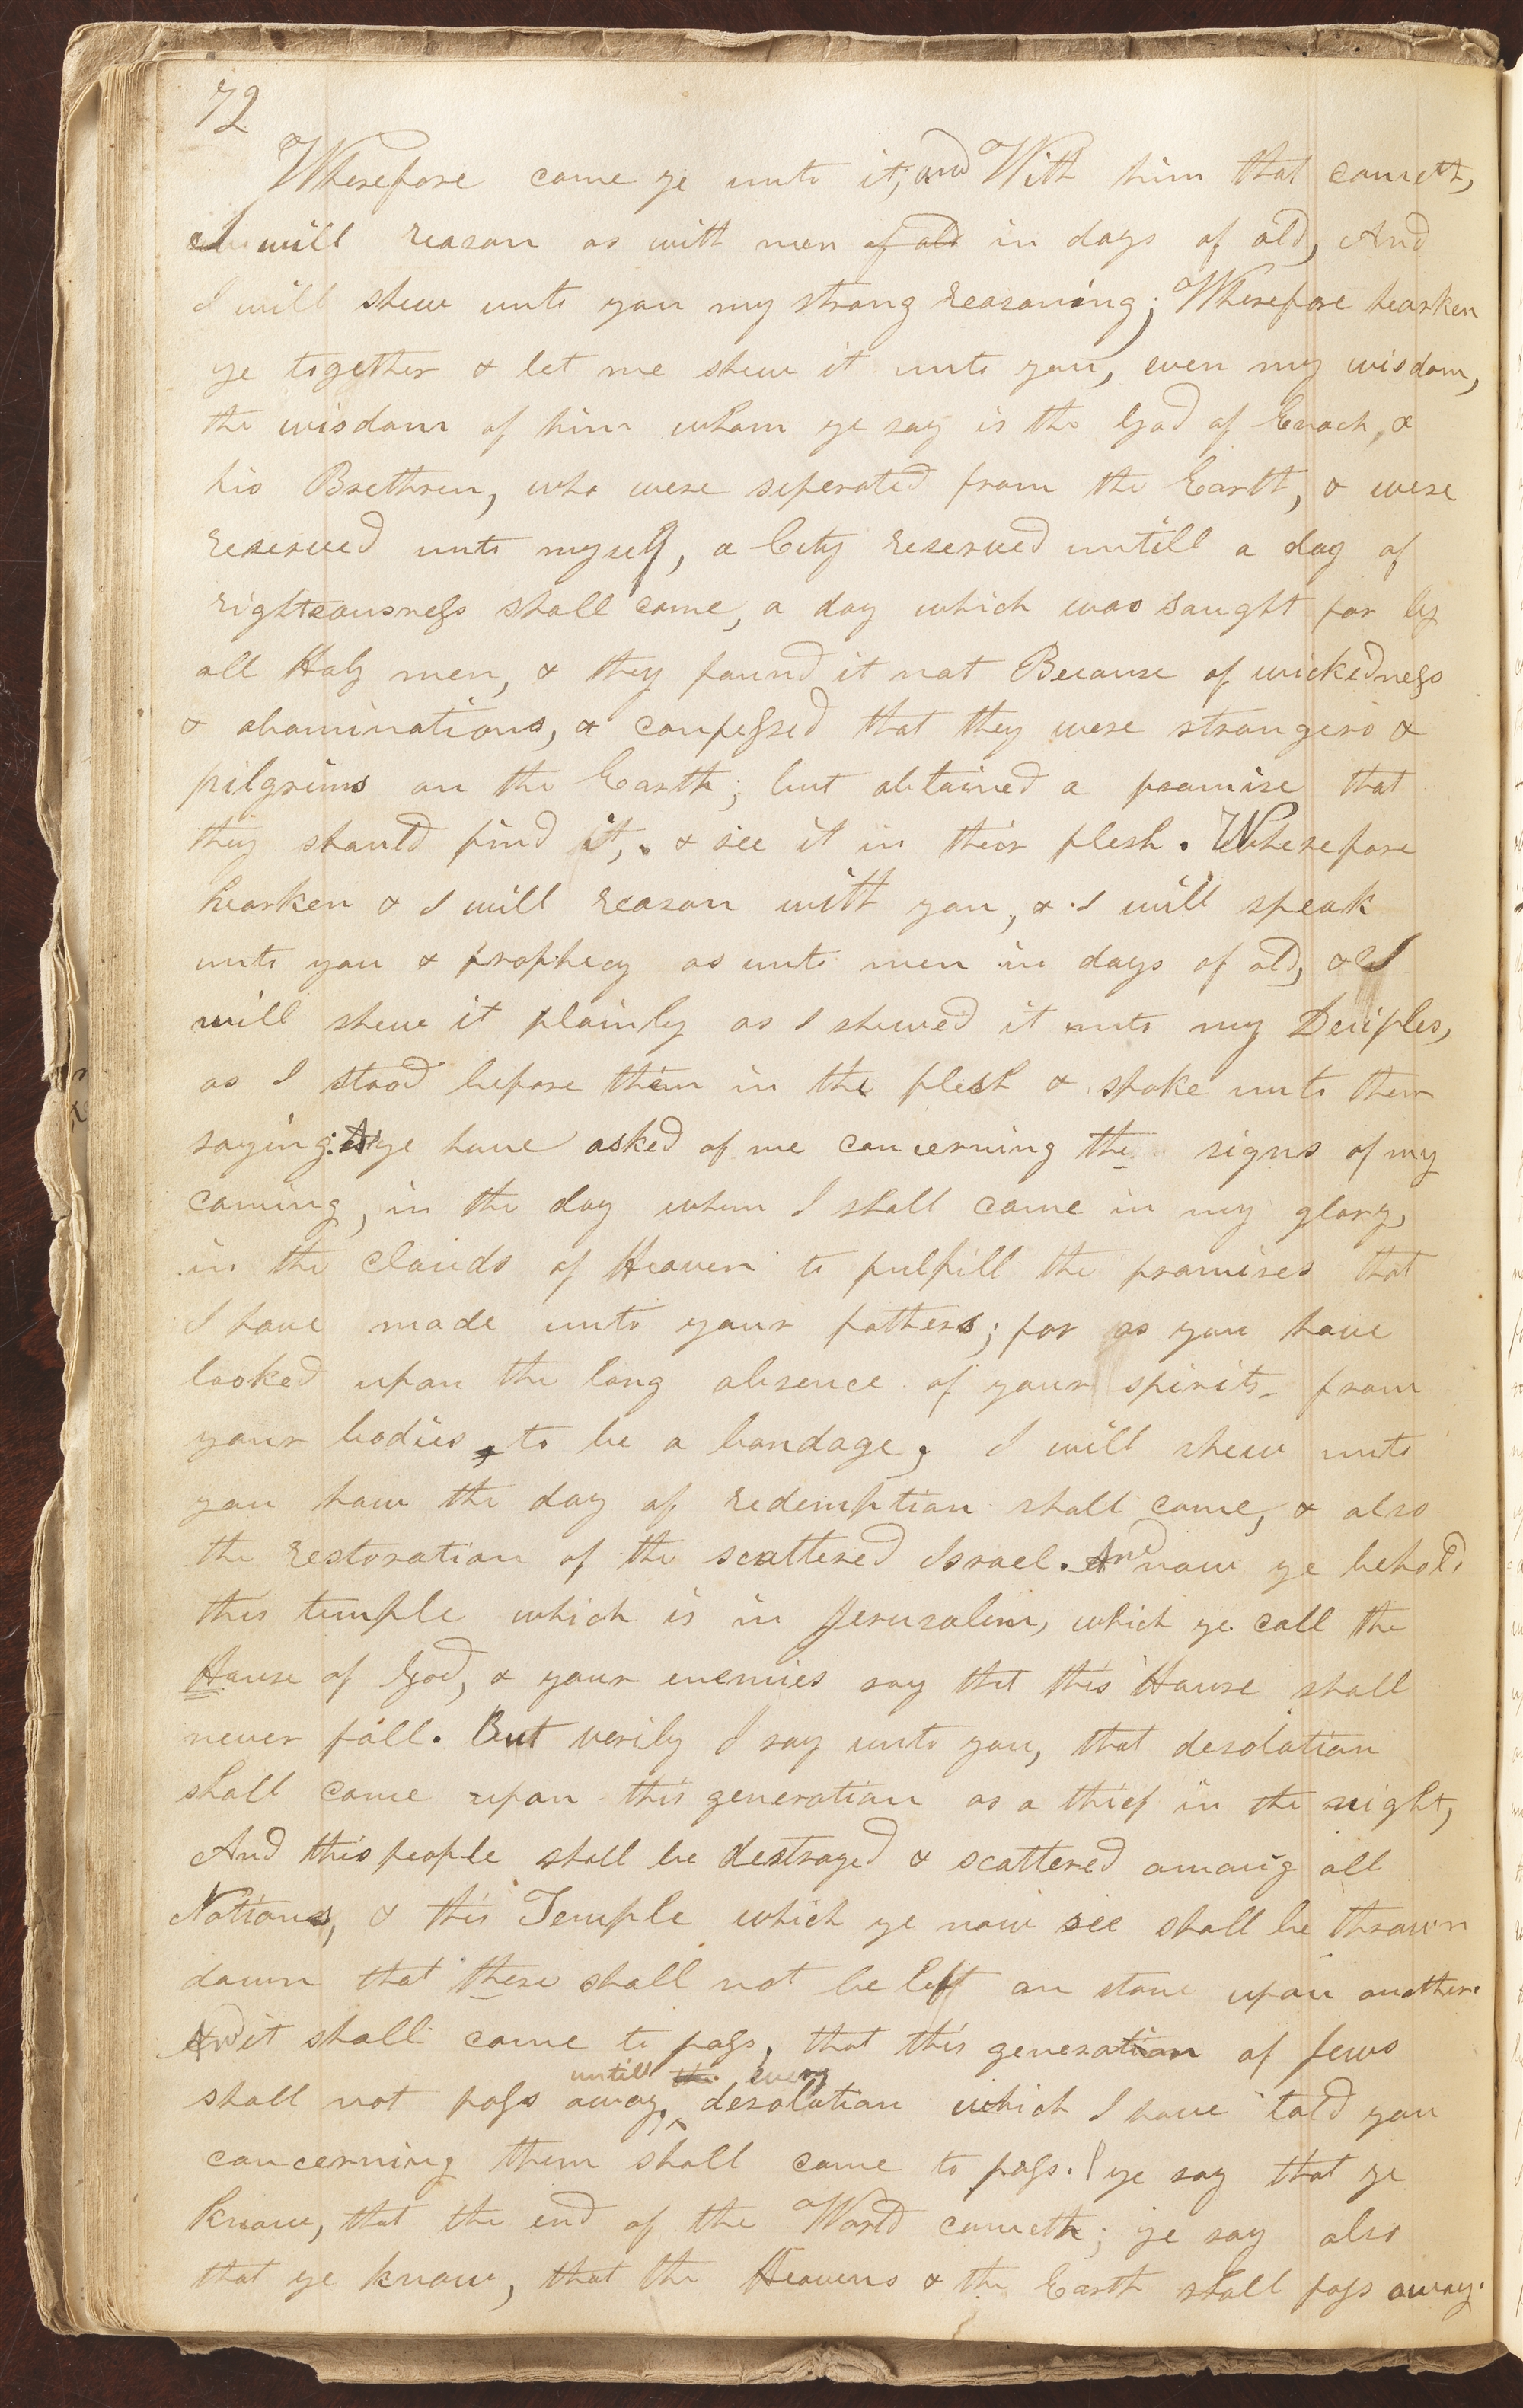 72
Wherefore come ye unto it; and With him that cometh,
I will reason as with men of old in days of old, And
I will shew unto you my strong reasoning; Wherefore hearken
ye together & let me shew it unto you, even my wisdom,
the wisdom of him whom ye say is the God of Enoch, &
his Brethren, who were seperated from the Earth, & were
reserved unto myself, a City reserved untill a day of
righteousness shall come, a day which was saught for by
all Holy men, & they found it not Because of wickedness
& abominations, & confessed that they were strangers &
pilgrims on the Earth; but obtained a promise that
they should find it, & see it in their flesh. Wherefore
hearken & I will reason with you, & I will speak
unto you & prophecy as unto men in days of old, & I
will shew it plainly as I shewed it unto my Deciples,
as I stood before them in the flesh & spoke unto them
saying: As ye have asked of me concerning the signs of my
coming, in the day when I shall come in my glory,
in the clouds of Heaven to fulfill the promises that
I have made unto your fathers; for as you have
looked upon the long absence of your spirits from
your bodies, to be a bondage, I will shew unto
you how the day of redemption shall come, & also
the restoration of the scattered Israel. And now ye behold
this temple which is in Jerusalem, which ye call the
House of God, & your enemies say that this House shall
never fall. But verily I say unto you, that desolation
shall come upon this generation as a thief in the night,
And this people shall be destroyed & scattered among all
Nations, & this Temple which ye now see shall be thrown
down that there shall not be left on stone upon another.
And it shall come to pass, that this generation of Jews
untill the every
shall not pass away, desolation which I have told you
concerning them shall come to pass. ye say that ye
know, that the end of the World cometh; ye say also
that ye know, that the Heavens & the Earth shall pass away.